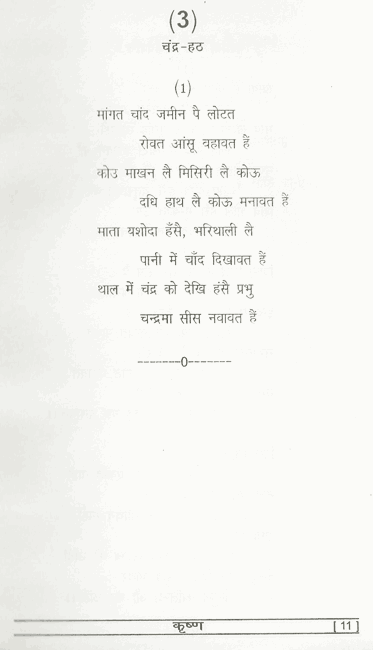 (3)
चंद्र-हठ
(1)
मांगत चांद जमीन पै लोटत
रोवत आंसू वहावत हैं
कोउ माखन लै मिसिरी लै कोऊ
दधि हाथ लै कोऊ मनावत हैं
माता यशोदा हँसै, भरिथाली लै
पानी में चाँद दिखावत हैं
थाल में चंद्र को देखि हंसै प्रभु
चन्द्रमा सीस नवावत हैं
-------0-------
कृष्ण [ 11 ]